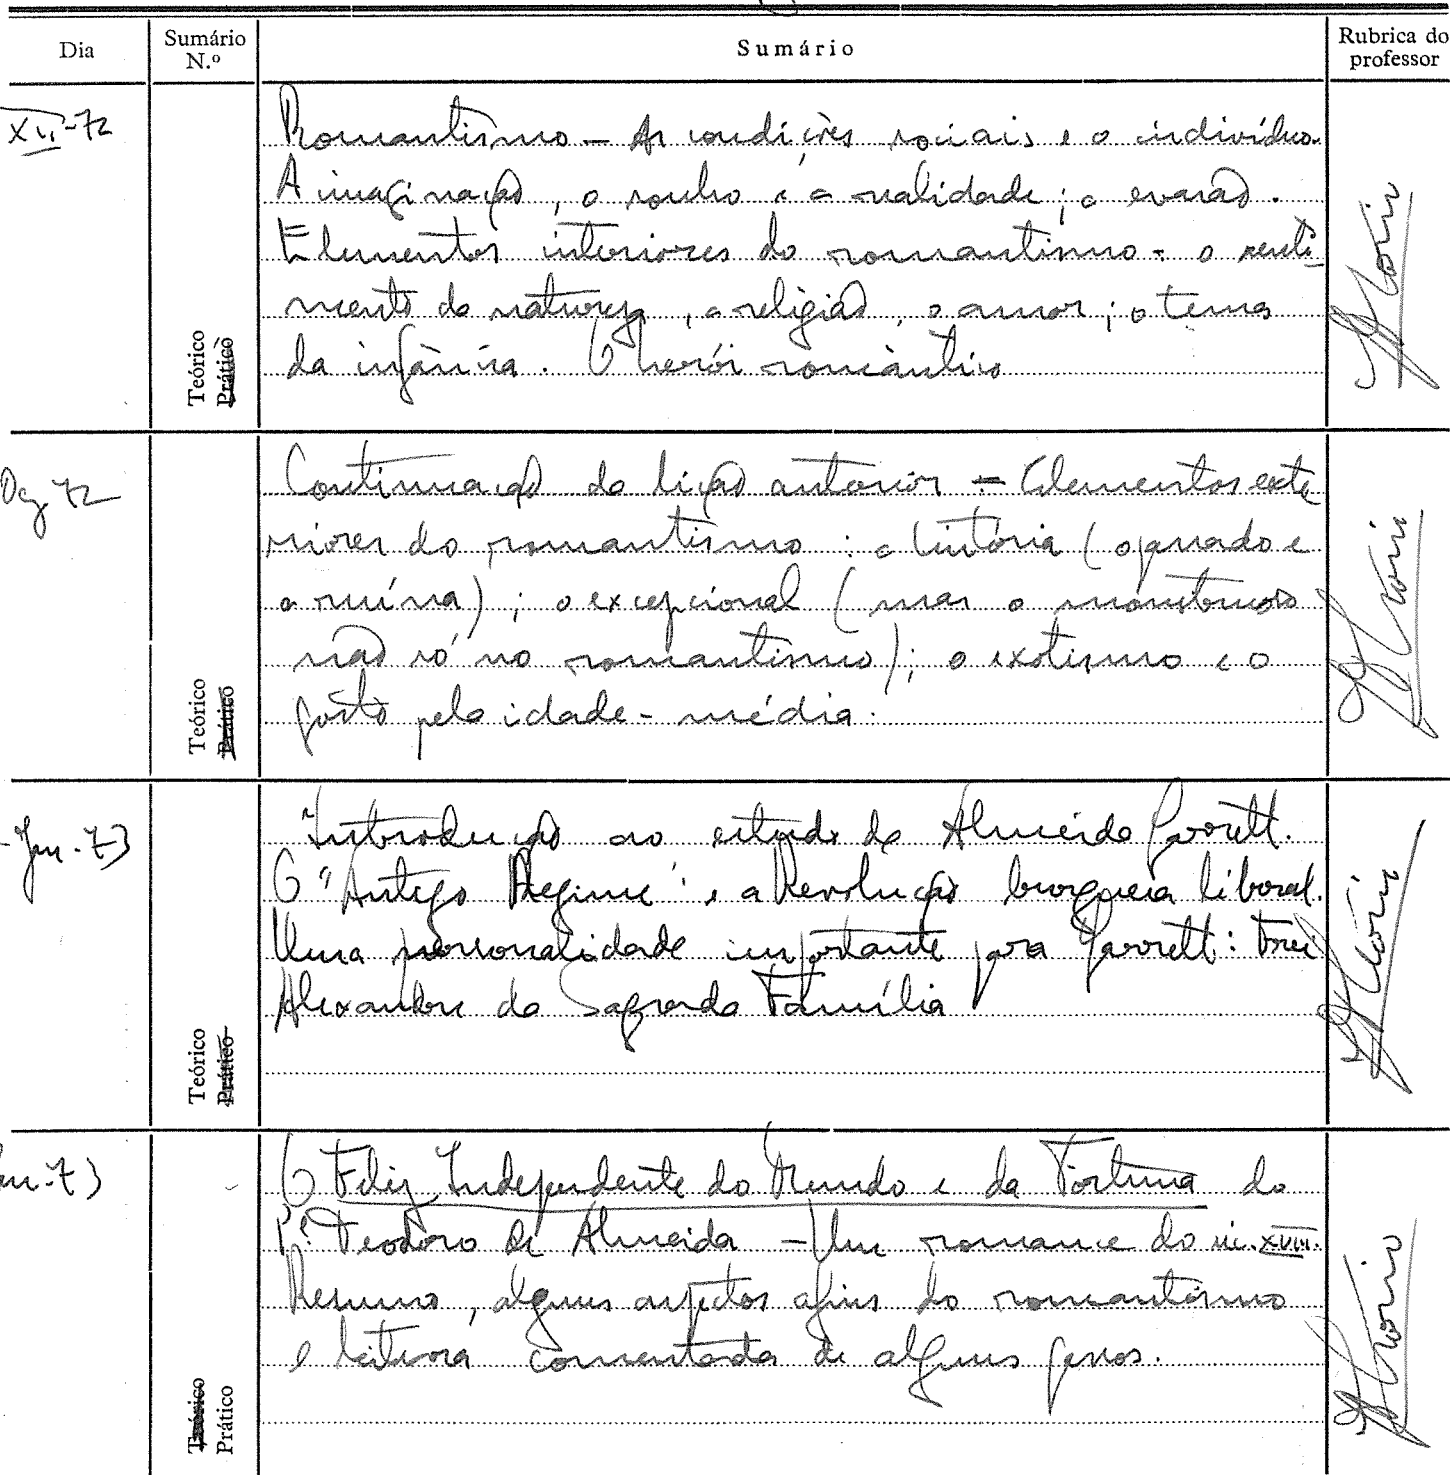 Dia
Sumário N.º
Sumário
Rubrica do professor
XII-72
Romantismo — As condições sociais e o indivíduo.
A imaginação, o sonho e a realidade; a evasão.
Elementos interiores do romantismo - o senti-
mento da natureza, a religião, o amor; o tema
da infância. O herói romântico
Teórico
Prático
Dez 72
Continuação da lição anterior — Elementos exte
riores do romantismo: a história (o passado e
a ruína); o excepcional (mas o monstruoso
não só no romantismo); o exotismo e o
gosto pela idade-média.
Teórico
Prático
-Jan.-73
Introdução ao estudo de Almeida Garrett.
O "Antigo Regime" e a Revolução burguesa liberal.
Uma personalidade importante para Garrett: Frei
Alexandre da Sagrada Família
Teórico
Prático
an-73
O Feliz Independente do Mundo e da Fortuna do
P.e Teodoro de Almeida — Um romance do séc. XVIII.
Resumo, alguns aspectos afins do romantismo
e leitura comentada de alguns passos.
Teórico
Prático